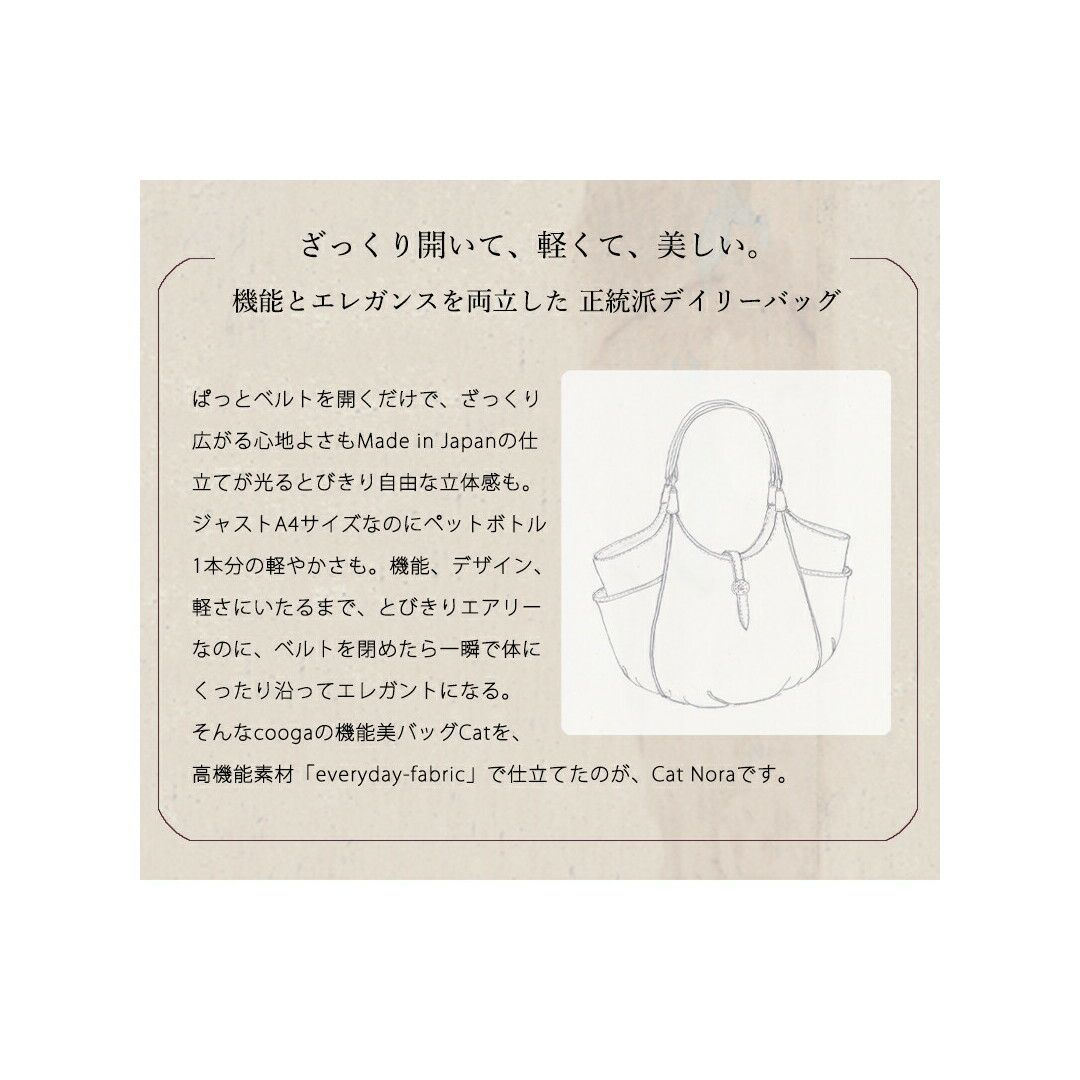 ざっくり開いて、軽くて、美しい。
機能とエレガンスを両立した 正統派デイリーバッグ
ぱっとベルトを開くだけで、ざっくり
広がる心地よさもMade in Japanの仕
立てが光るとびきり自由な立体感も。
ジャストA4サイズなのにペットボトル
1本分の軽やかさも。機能、デザイン、
軽さにいたるまで、とびきりエアリー
なのに、ベルトを閉めたら一瞬で体に
くったり沿ってエレガントになる。
そんなcoogaの機能美バッグCatを、
高機能素材「everyday-fabric」で仕立てたのが、Cat Noraです。